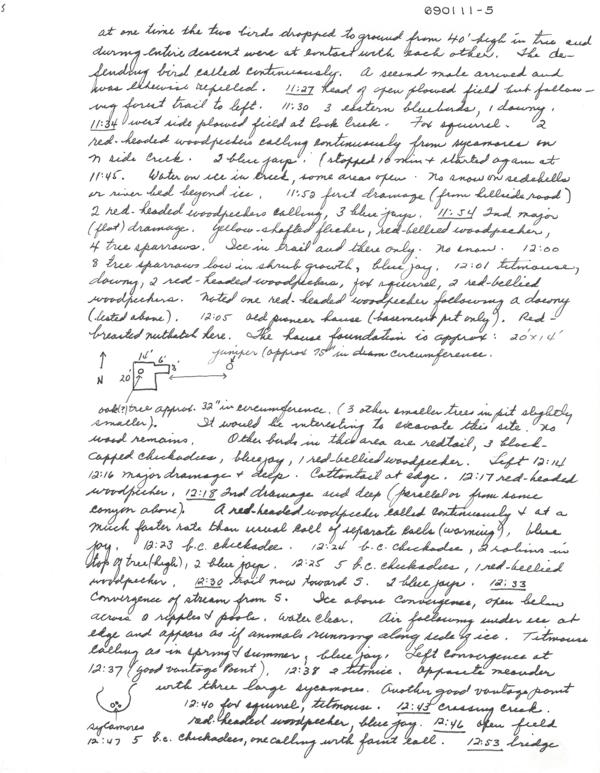 690111-5
at one time the two birds dropped to ground from 40' high in tree and
during entire descent were at contact with each other. The de-
fending bird called continuously. A second male arrived and
was likewise repelled. 11:27 head of open plowed field but follow-
ing forest trail to left. 11:30 3 eastern bluebirds, 1 downy.
11:34 west side plowed field at Rock Creek. Fox squirrel. 2
red-headed woodpeckers calling continuously from sycamores on
N side creek. 2 blue jays. (stopped 10 min + started again at
11:45. Water on ice in creek, some areas open. No snow on
or river bed beyond ice. 11:52 first drainage (from hillside road)
2 red-headed woodpeckers calling, 3 blue jays. 11:54 2nd major
(flat) drainage. Yellow-shafted flicker, red-bellied woodpecker,
4 tree sparrows. Ice in trail and there only. No snow. 12:00
8 tree sparrows low in shrub growth, blue jay. 12:01 titmouse,
downy, 2 red-headed woodpeckers, fox squirrel, 2 red-bellied
woodpeckers. Noted one red-headed woodpecker following a downy
(listed above). 12:05 old pioneer house (basement pit only). Red-
breasted nuthatch here. The house foundation is approx: 20'x14'
juniper (approx 75" in diam circumference.
14' 6'
8'
20'
N
oak(?) tree approx. 32" in circumference. (3 other smaller trees in pit slightly
smaller). It would be interesting to excavate this site. No
wood remains. Other birds in this area are redtail, 3 black-
capped chickadees, blue jay, 1 red-bellied woodpecker. Left 12:14
12:16 major drainage + deep. Cottontail at edge. 12:17 red-headed
woodpecker, 12:18 2nd drainage and deep (parallel or from same
canyon above). A red-headed woodpecker called continuously + at a
much faster rate than usual call of separate calls (warning?), blue
jay. 12:23 b.c. chickadee. 12:24 b.c. chickadee, 2 robins in
top of tree (high), 2 blue jays. 12:25 5 b.c. chickadees, 1 red-bellied
woodpecker. 12:30 trail now toward S. 2 blue jays. 12:33
Convergence of stream from S. Ice above convergence, open below
across ripples + pools. Water clear. Air following under ice at
edge and appears as if animals running along side of ice. Titmouse
calling as in spring + summer, blue jay. Left convergence at
12:37 (good vantage point). 12:38 2 titmice. Opposite meander
with three large sycamores. Another good vantage point
12:40 fox squirrel, titmouse. 12:43 crossing creek.
red-headed woodpecker, blue jay. 12:46 open field
sycamores
12:47 5 b.c. chickadees, one calling with faint call. 12:53 bridge